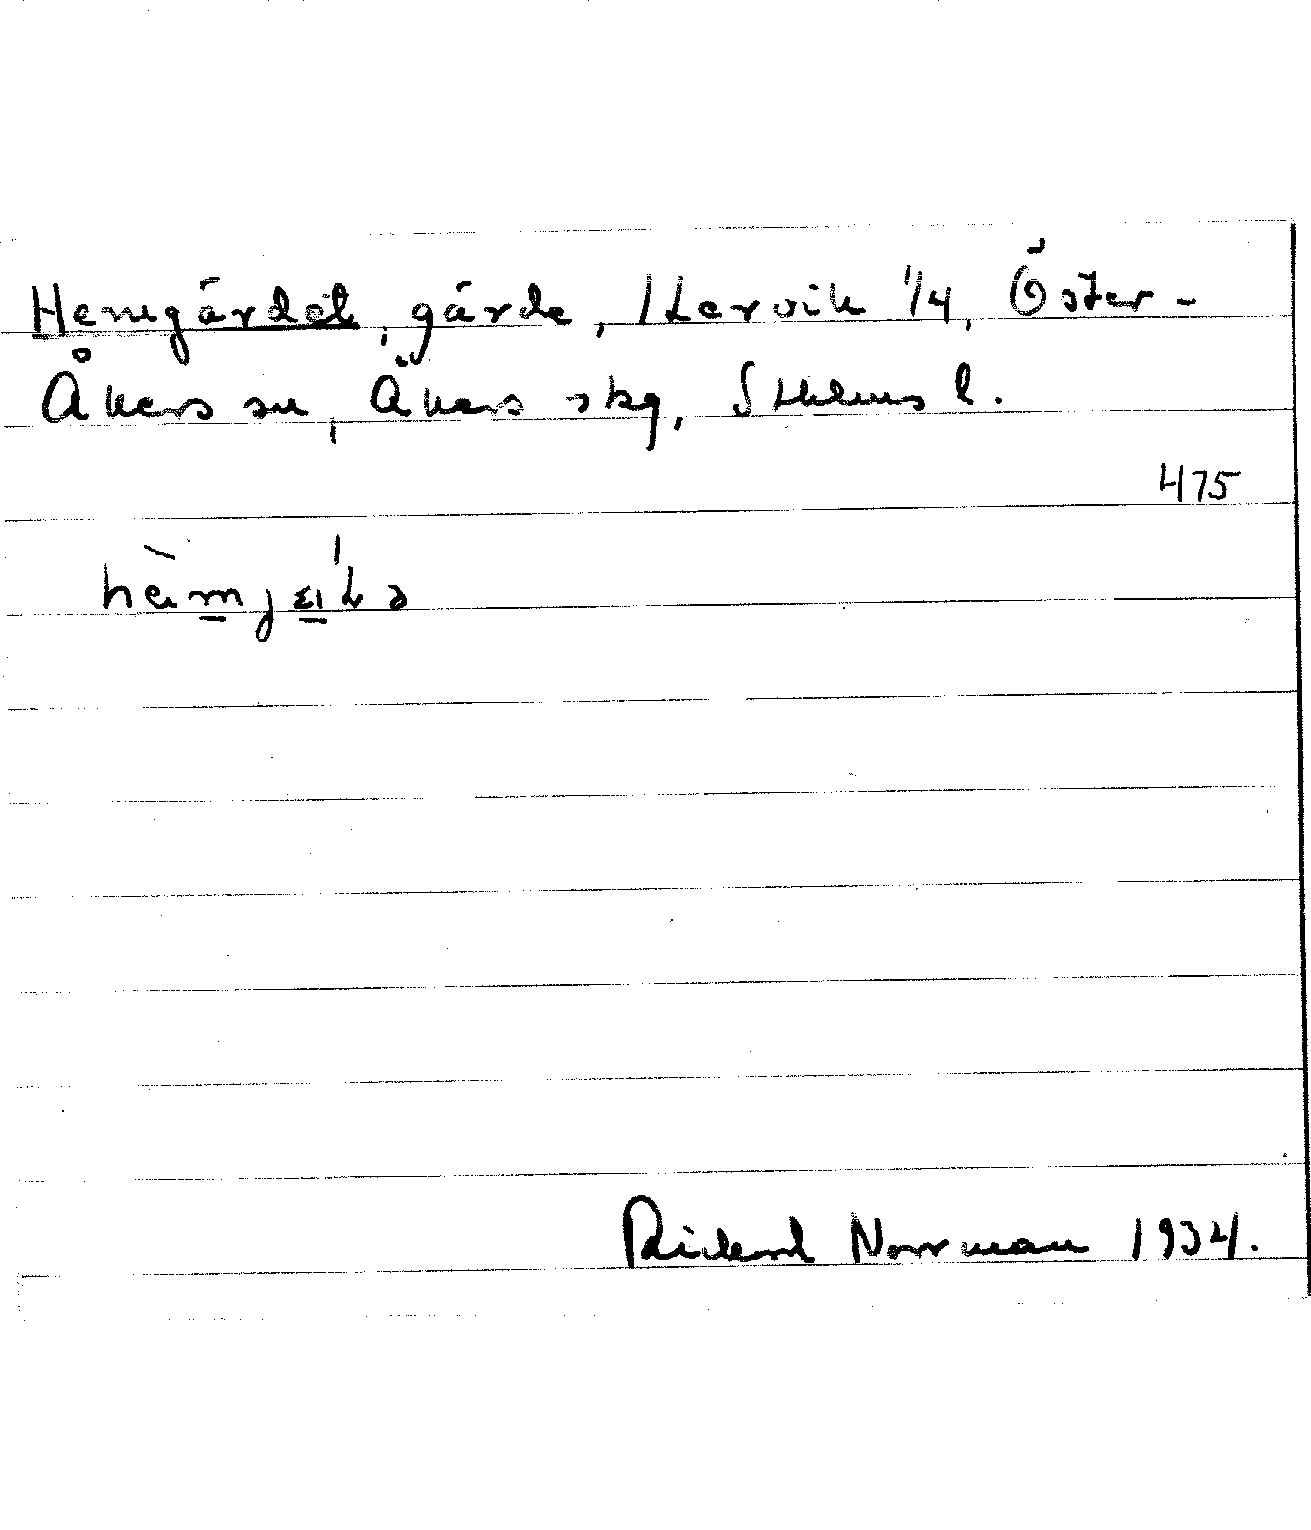 Hemgärdet, gärde, Hervik 1/4, Öster-
Åkers sn, Åkers skg, Sthlms l.
475
Rickard Norrman 1934.